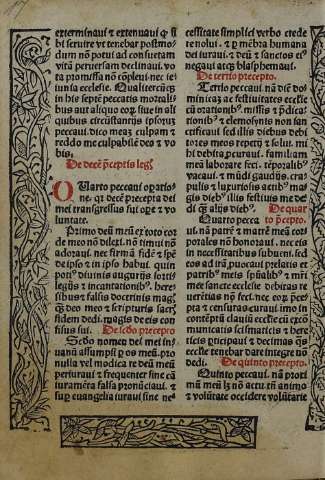 exterminaui et extenuaui qͥ si
bi seruire vt tenebar postmo-
dum nō potui ad consuetam
vitā peruersam declinaui. vo
ta promissa nō cōpleui. nec ie-
iunia ecclesie. Qualitercūqꝫ
in his septē peccatis mortali-
bus aut aliquo eorū siue in ali
quibus circūstantijs ipsorū
peccaui. dico meaʒ culpam et
reddo me culpabilē deo et vo
bis.
De decē p̄ceptis leg̕
QUarto peccaui orōtio-
ne. qꝛ decē precepta dei
mei transgressus sui ore ⁊ vo
luntate.
Primo deū meū ex toto cor
de meo nō dilexi. nō timui nō
adoraui. nec firmā fidē ⁊ spē
de ipso ⁊ in ipso habui. quin
poti9 diuinis auguriis sortī
legijs ⁊ incantationib9. here
sibus ⁊ falsis doctrinis magꝭ
qͣʒ deo meo ⁊ scripturis sacꝭ
fidem dedi. magꝭ eis qͣʒ deis con
fisus sui. De scd̄o precepto
Scd̄o nomen dei mei in
uanū assumpsi ꝓ os meū. ꝓ
nulla vel modica re deū meū
periuraui ⁊ frequenter sine cā
iuramēta falsa pronūciaui. ⁊
suꝑ euangelia iuraui sine ne-
cessitate simplici verbo crede
re nolui. ⁊ ꝑ mēbra humana
dei iuraui. ⁊ deū ⁊ sanctos ei9
negaui atqꝫ blasphemaui.
De tertio precepto.
Tertio peccaui. nā diē do-
minicaʒ ⁊ festiuitates ecclesie
cū orationib9. missis ⁊ p̄dica-
tionib9 ⁊ elemosynis non san-
ctificaui sed illis diebus debi
tores meos repetij ⁊ solui. mi
hi debita ꝓcuraui. familiam
meā laborare feci. tēporalib9
vacaui. ⁊ mūdi gaudijs. crap
pulis ⁊ luxuriis actib9 mag
dieb9 illis festiuis me de
di qͣʒ alijs dieb9. De quar
to p̄cepto.
Quarto peccaui nā patrē
meū ⁊ matrē meā nō vt cor-
rales nō honoraui. nec eis
in necessitatibus subueni. sed
eos ad irā ꝓuocaui prelatis et
patrib9 meis sp̄ualib9 ⁊ mr̄i
mee sancte ecclesie debitas re
uerētias nō feci. nec eorū p̄cep
ta ⁊ censuras curaui. imo in
contēptū clauiū ecclesie cū exco
municatis scismaticis ⁊ here
ticis ꝑticipaui ⁊ decimas qͣs
ecclesie tenebar dare integre nō
dedi. De quinto precepto.
Quinto peccaui. nā proxi
mū meū lꝫ nō actu tn̄ animo
⁊ voluntate occidere voluntarie